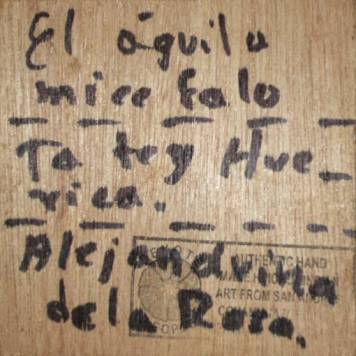 El águila
mice falo
Ta tey Hue_
rica.
Alejandrina
de la Rosa.
AUTHENTIC HAND
ART FROM SAN